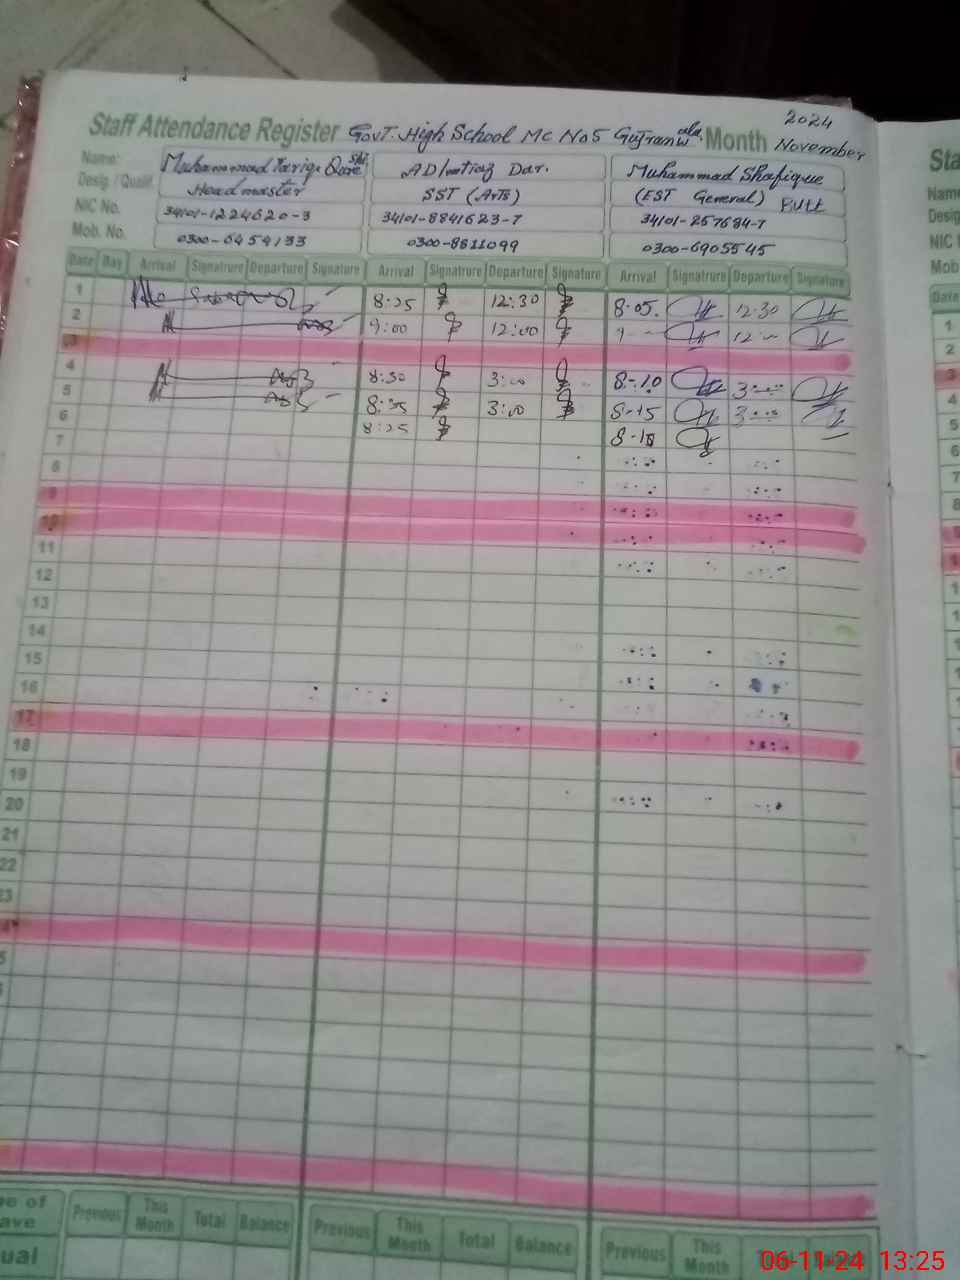 2024
Staff Attendance Register Govt. High School MC No5 Gujranwala Month November
Name: Muhammad Tariq AD Imtiaz Dar. Muhammad Shafique
Desig. / Qualif. Headmaster SST (Arts) (EST General) Butt
NIC No. 34101-1224620-3 34101-8841623-7 34101-257684-7
Mob. No. 0300-6454133 0300-8811099 0300-6905545
Date Day Arrival Signatrure Departure Signature Arrival Signatrure Departure Signature Arrival Signatrure Departure Signature
1 8:25 12:30 8:05. 12:30
2 9:00 12:00 9 12
3
4 8:30 3:00 8:10 3:00
5 8:35 3:00 8:15 3:00
6 8:25 8:10
7
8
9
10
11
12
13
14
15
16
17
18
19
20
21
22
23
4
5
Previous This Month Total Balance Previous This Month Total Balance Previous This Month
ual
Sta
Name
Desig
NIC
Mob
Date
1
2
3
4
5
6
7
8
06-11-24 13:25